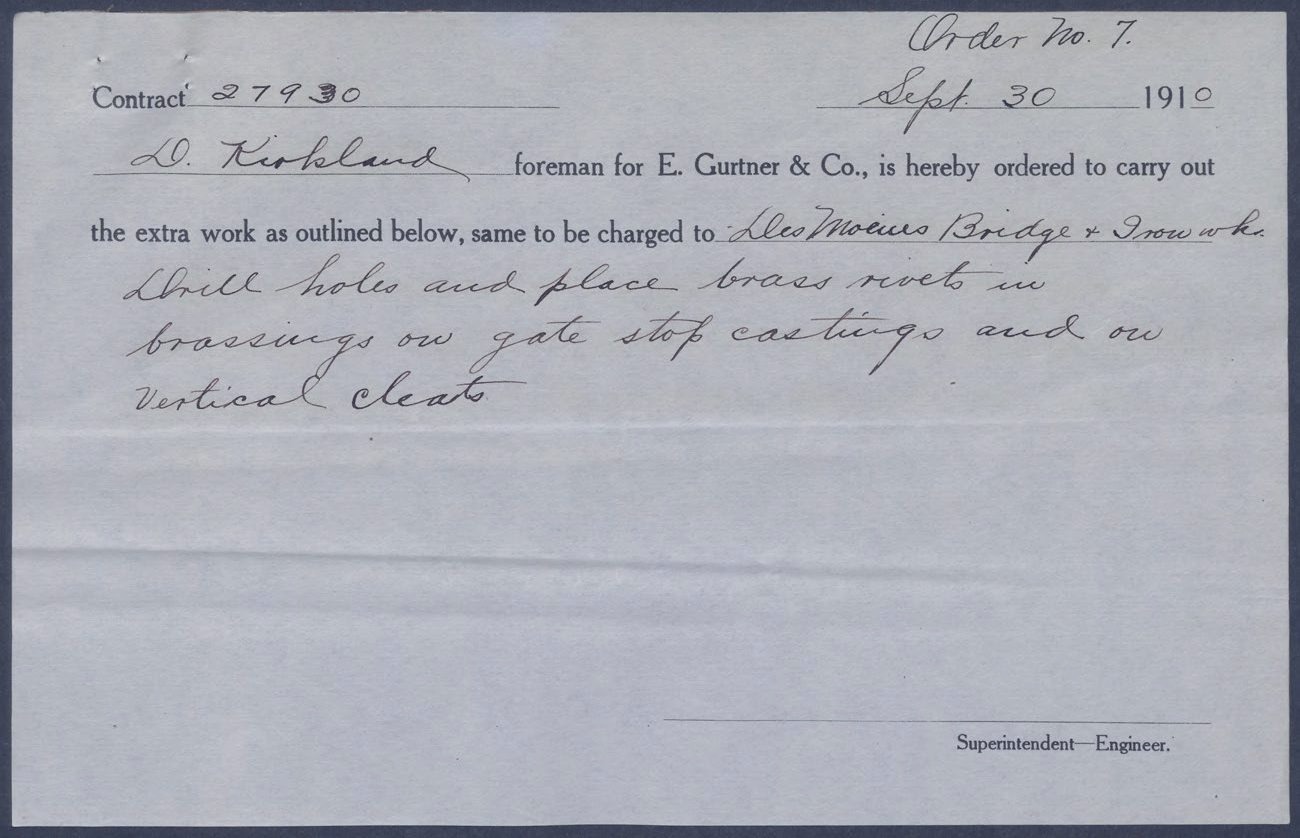 Order No. 7.
Contract 27930 Sept. 30 1910
D. Kirkland foreman for E. Gurtner & Co., is hereby ordered to carry out
the extra work as outlined below, same to be charged to Des Moines Bridge & Iron wks.
Drill holes and place brass rivets in
brassings on gate stop castings and on
Vertical cleats
Superintendent—Engineer.